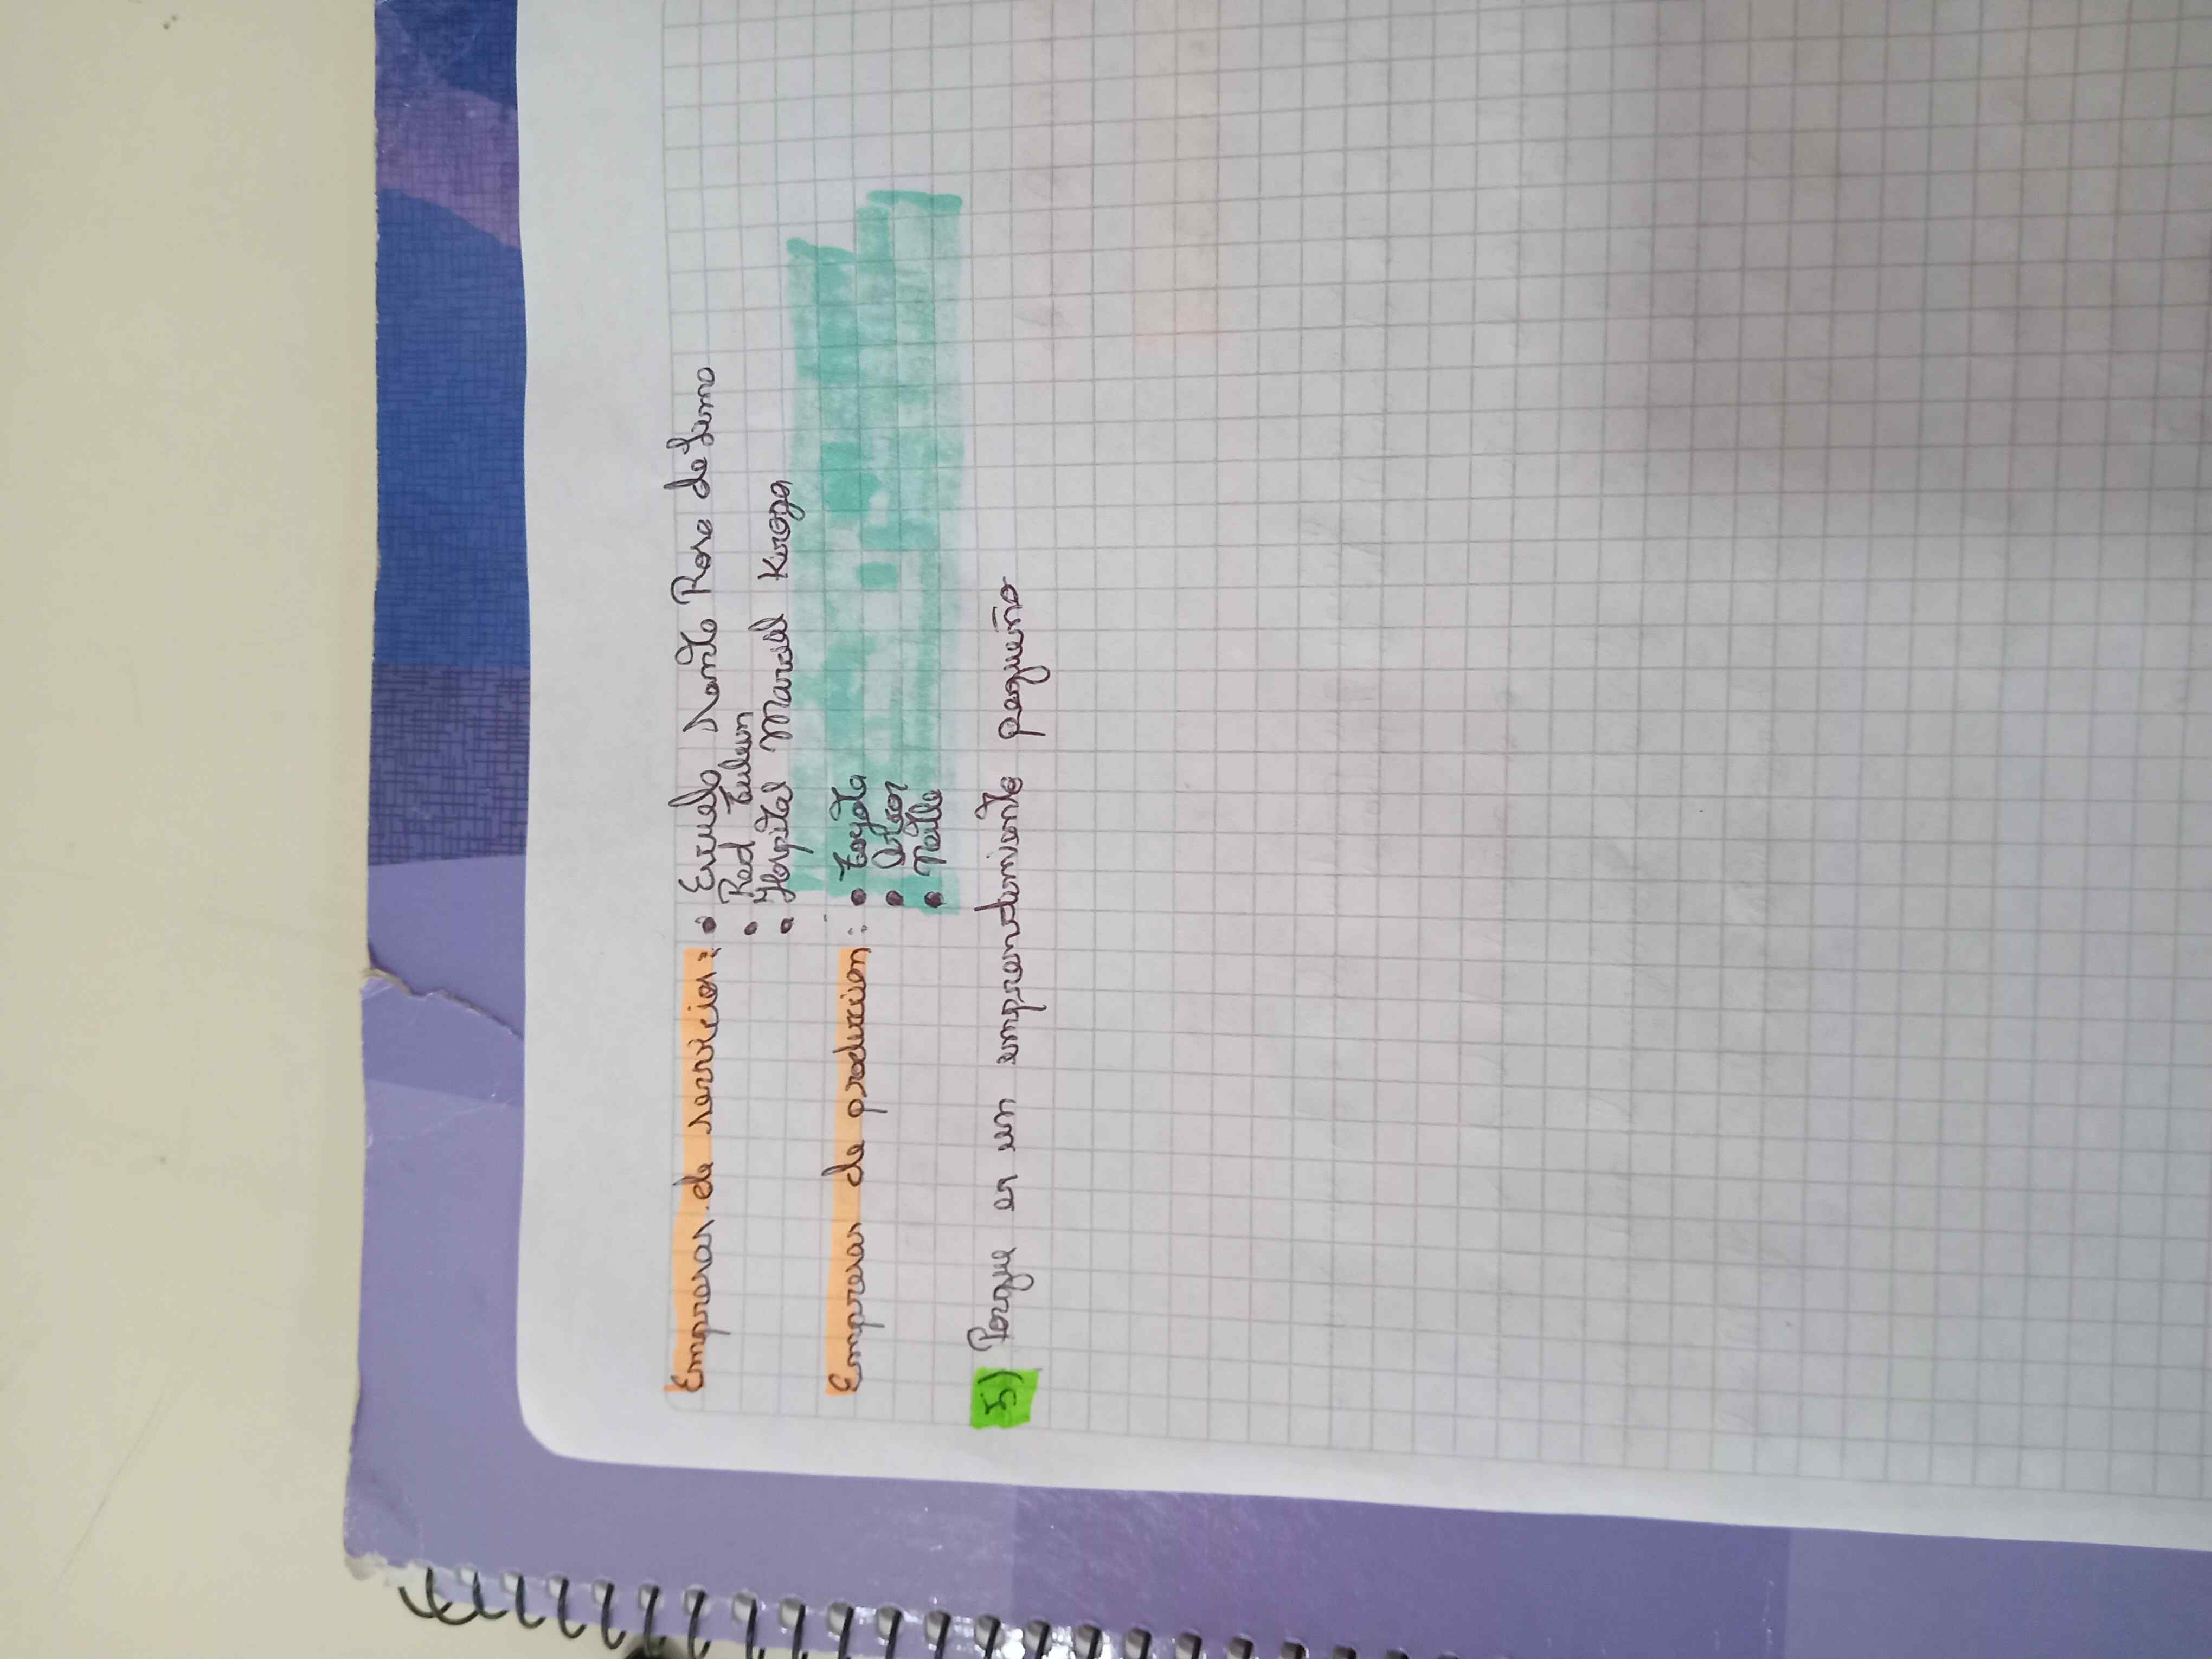 Empresas de servicios: • Escuela Santa Rosa de Lima
• Red Tulum
• Hospital Marcial Kiroga
Empresas de produccion: • Toyota
• Arcor
• Nestle
5) Porque es un emprendimiento pequeño